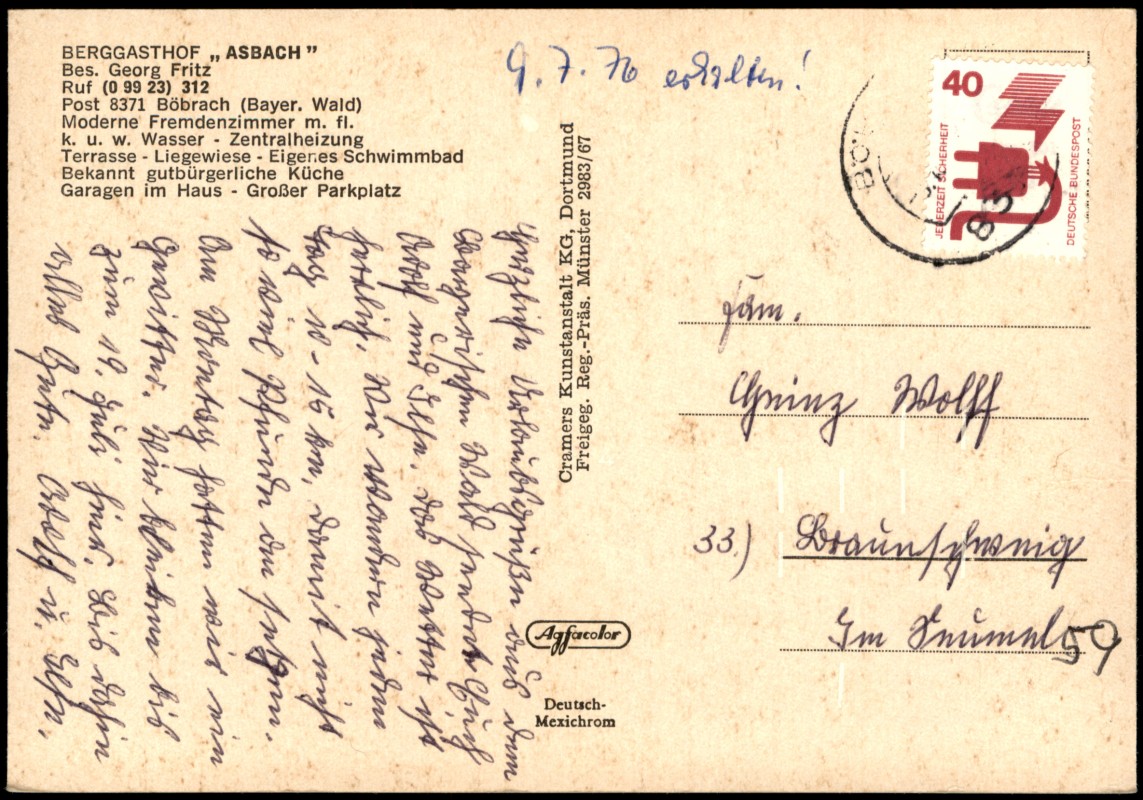 BERGGASTHOF „ASBACH"
Bes. Georg Fritz
Ruf (0 99 23) 312
Post 8371 Böbrach (Bayer. Wald)
Moderne Fremdenzimmer m. fl.
k. u. w. Wasser - Zentralheizung
Terrasse - Liegewiese - Eigenes Schwimmbad
Bekannt gutbürgerliche Küche
Garagen im Haus - Großer Parkplatz
9. 7. 76 erhalten!
40
JEDERZEIT SICHERHEIT
DEUTSCHE BUNDESPOST
837
Herzliche Urlaubsgrüße aus dem
Bayerischen Wald sendet Euch
Adolf und Ilse. Das Wetter ist
herrlich. Wir wandern jeden
Tag 10-15 km, damit nicht
so viel Pfunde
Am Montag hatten wir ein
Gewitter. Wir bleiben bis
zum 19. Juli hier. Bis dahin
alles Gute. Adolf u. Ilse.
Cramers Kunstanstalt KG, Dortmund
Freigeg. Reg.-Präs. Münster 2983/67
Agfacolor
Deutsch-
Mexichrom
Fam.
Heinz Wolff
33.) Braunschweig
Im 59